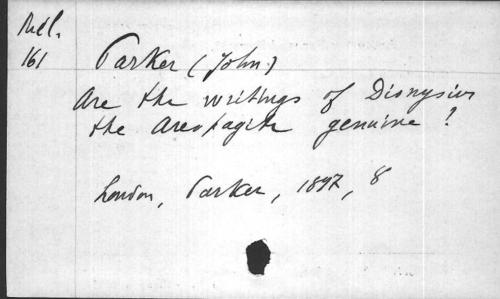 Mél.
161
Parker (John)
Are the writings of Dionysius
the Areopagite genuine ?
London, Parker, 1897, 8